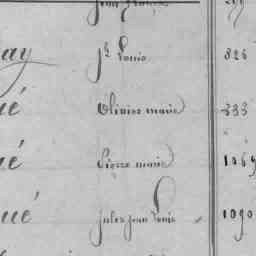 Jean
ay Jh Louis 826
ué Olivier marie 333
ué Pierre marie 1069
ué Jules jean Louis 1090